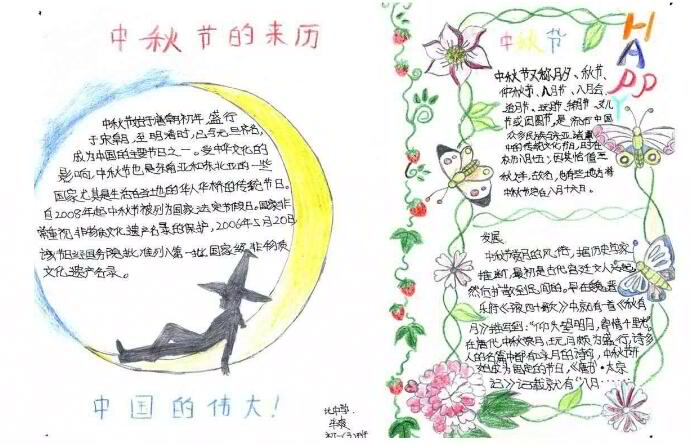 中秋节的来历
中秋节始于唐朝初年,盛行
于宋朝,至明清时,已与元旦齐名,
成为中国的主要节日之一。受中华文化的
影响,中秋节也是东南亚和东北亚的一些
国家尤其是生活在当地的华人华侨的传统节日。
自2008年起中秋节被列为国家法定节假日。国家非
常重视非物质文化遗产名录的保护,2006年5月20日,
该节日经国务院批准列入第一批国家级非物质
文化遗产名录。
中国的伟大!
中秋节
HAPPY
中秋节又称月夕、秋节、
仲秋节、八月节、八月会、
追月节、玩月节、拜月节、女儿
节或团圆节,是流行中国
众多民族与东亚诸国
中的传统文化节日,时在
农历八月十五;因其恰值三
秋之半,故名,也有些地方将
中秋节定在八月十六。
发展:
中秋节赏月的风俗,据历史学家
推断,最初是古代宫廷文人兴起,
然后扩散到民间的。早在魏晋
乐府《子夜四十歌》中就有一首《秋有
月》描写到:“仰头望明月,寄情千里光。”
在唐代,中秋赏月,玩月颇为盛行,许多
人的名篇中都有咏月的诗句,中秋节开
始成为固定的节日,《唐书·太宗
记》记载就有“八月……